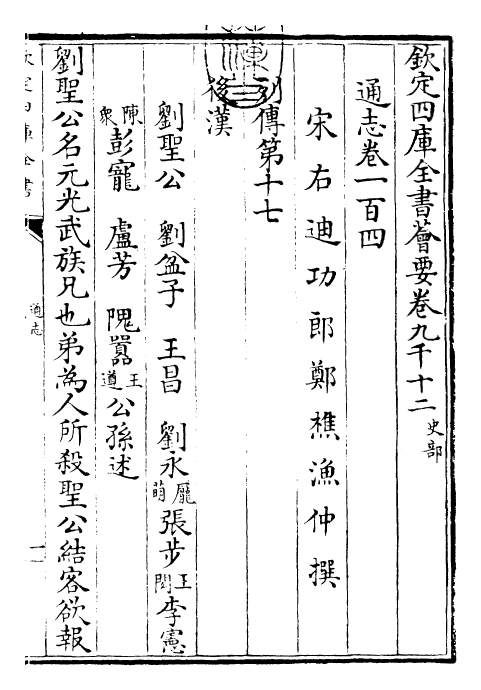 欽定四庫全書薈要卷九千十二 史部
通志卷一百四
宋右迪功郎鄭樵漁仲撰
列傳第十七
後漢
劉聖公 劉盆子 王昌 劉永 龐萌 張步 王閎 李憲
陳衆 彭寵 盧芳 隗囂 王遵 公孫述
劉聖公名元光武族兄也弟為人所殺聖公結客欲報
欽定四庫全書
通志
一